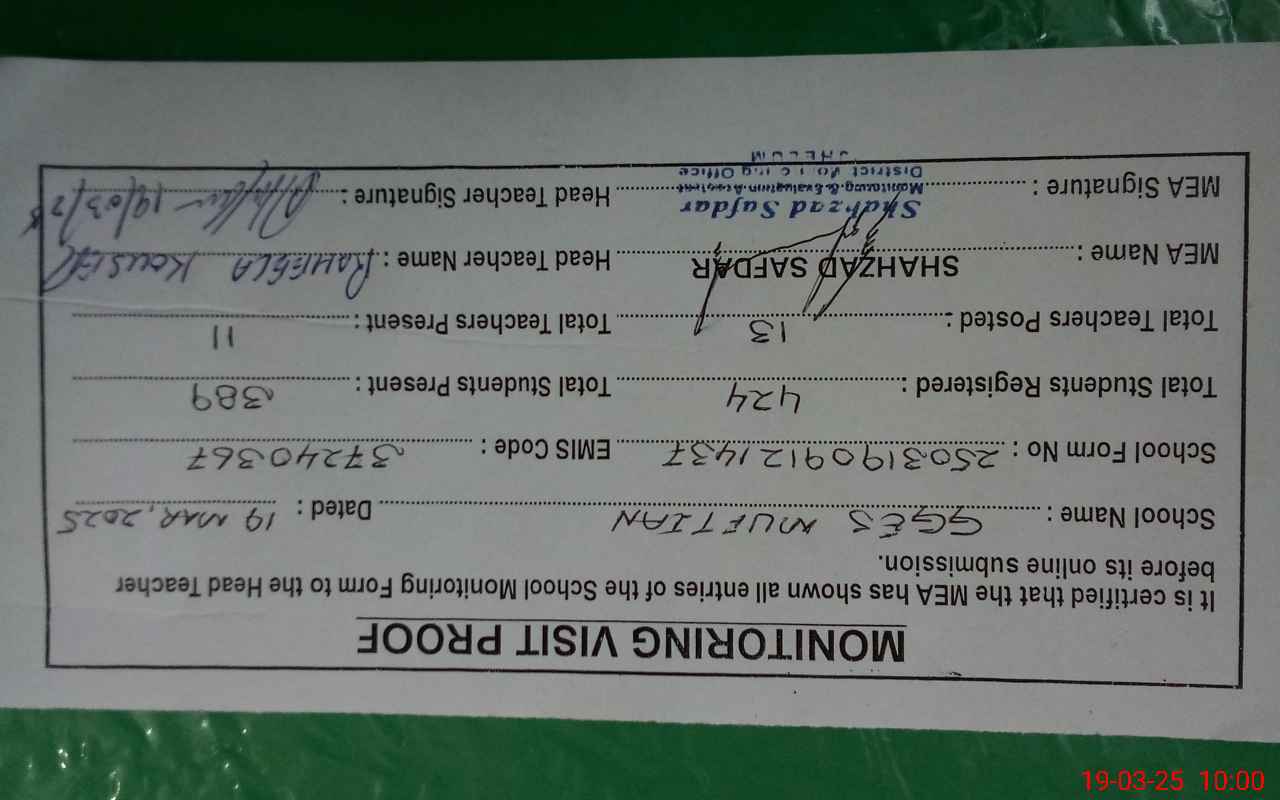 MONITORING VISIT PROOF
It is certified that the MEA has shown all entries of the School Monitoring Form to the Head Teacher
before its online submission.
School Name : GGES MUFTIAN Dated : 19 MAR, 2025
School Form No : 25031909121437 EMIS Code : 37240367
Total Students Registered : 424 Total Students Present : 389
Total Teachers Posted : 13 Total Teachers Present : 11
MEA Name : SHAHZAD SAFDAR Head Teacher Name : RAHEELA KOUSER
MEA Signature : Head Teacher Signature : 19/03/25
Shahzad Safdar
Monitoring & Evaluation Assistant
District Office
JHELUM
19-03-25 10:00